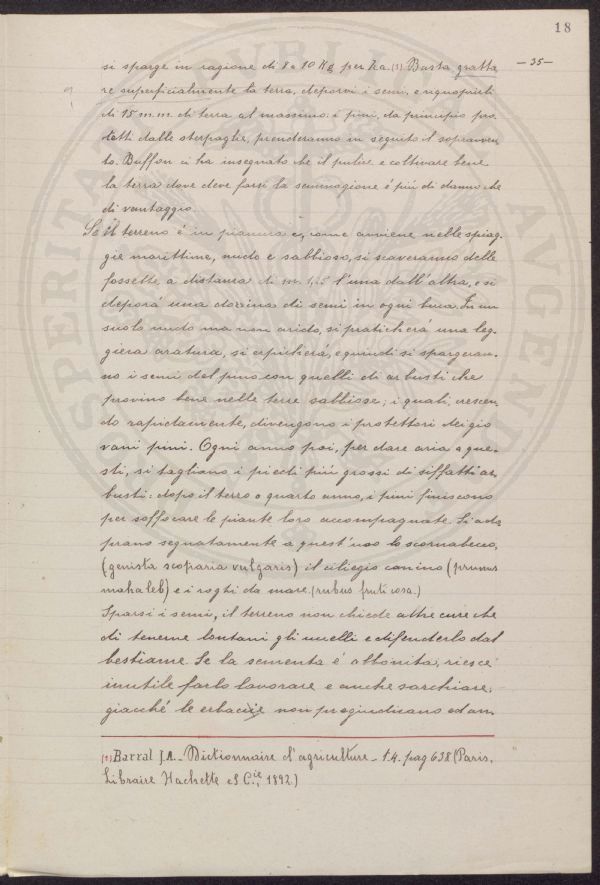 18
— 35 —
si sparge in ragione di 8 a 10 Kg per ha. (1) Basta gratta
re superficialmente la terra, deporvi i semi, e ricoprirli
di 15 m.m di terra al massimo: i pini, da principio pro
tetti dalle sterpaglie, prenderanno in seguito il sopravven
to. Buffon ci ha insegnato che il pulire e coltivare bene
la terra dove deve farsi la seminagione è più di danno che
di vantaggio.
Se il terreno è in pianura e, come avviene nelle spiag-
gie marittime, nudo e sabbioso, si scaveranno delle
fossette, a distanza di m. 1,25 l'una dall'altra, e si
deporrà una dozzina di semi in ogni buca. In un
suolo nudo ma non arido, si praticherà una leg-
giera aratura, si erpicherà, e quindi si spargeran-
no i semi del pino con quelli di arbusti che
provino bene nelle terre sabbiose; i quali, crescen-
do rapidamente, divengono i protettori dei gio
vani pini. Ogni anno poi, per dare aria a que-
sti, si tagliano i piedi più grossi di siffatti ar-
busti: dopo il terzo o quarto anno, i pini finiscono
per soffocare le piante loro accompagnate. Si ado
prano segnatamente a quest'uso lo scornabecco,
(genista scoparia vulgaris) il ciliegio canino (prunus
mahaleb) e i roghi da more. (rubus fruticosa.)
Sparsi i semi, il terreno non chiede altre cure che
di tenerne lontani gli uccelli e difenderlo dal
bestiame. Se la sementa è attonita, riesce
inutile farlo lavorare e anche sarchiare;
giacché le erbaccie non pregiudicano ed an-
(1) Barral J.A. - Dictionnaire d'agriculture - t. 4. pag 638 (Paris,
Libraire Hachette et C.ie, 1892.)
SPERITAT
PUBLI
AVGENDI